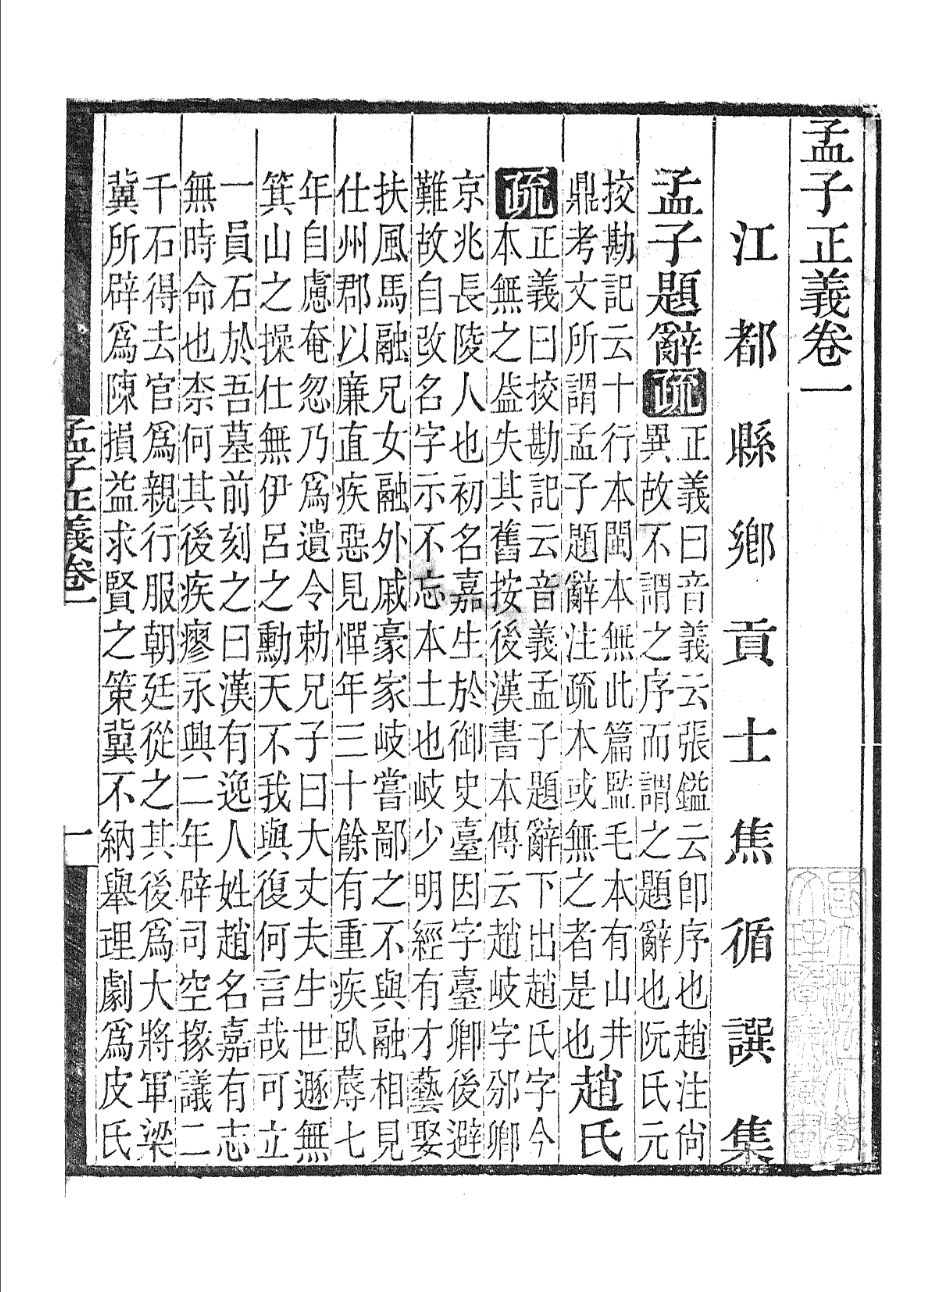 孟子正義卷一
江都縣鄉貢士焦循譔集
孟子題辭疏
正義曰音義云張鎰云卽序也趙注尚
異故不謂之序而謂之題辭也阮氏元
挍勘記云十行本閩本無此篇監毛本有山井
鼎考文所謂孟子題辭注疏本或無之者是也
趙氏
疏
正義曰挍勘記云音義孟子題辭下出趙氏字今
本無之葢失其舊按後漢書本傳云趙岐字邠卿
京兆長陵人也初名嘉生於御史臺因字臺卿後避
難故自改名字示不忘本土也岐少明經有才藝娶
扶風馬融兄女融外戚豪家岐嘗鄙之不與融相見
仕州郡以廉直疾惡見憚年三十餘有重疾臥蓐七
年自慮奄忽乃爲遺令勅兄子曰大丈夫生世遯無
箕山之操仕無伊呂之勳天不我與復何言哉可立
一員石於吾墓前刻之曰漢有逸人姓趙名嘉有志
無時命也柰何其後疾瘳永興二年辟司空掾議二
千石得去官爲親行服朝廷從之其後爲大將軍梁
冀所辟爲陳損益求賢之策冀不納舉理劇爲皮氏
孟子正義卷一
一